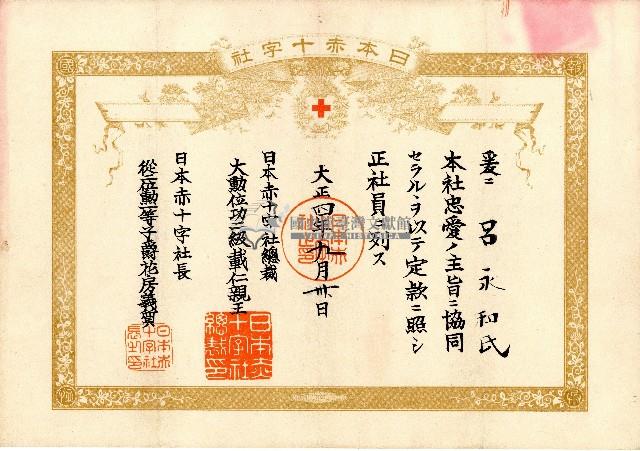 日本赤十字社
報
國
爰ニ 呂永和氏
本社忠愛ノ主旨ニ協同
セラルヽヲ以テ定款ニ照シ
正社員ニ列ス
大正四年九月廿日
日本赤十字社總裁
大勲位功二級載仁親王
日本赤十字社長
從二位勲一等子爵花房義質
日本赤十字社總裁印
日本赤十字社長之印
國史館臺灣文獻館